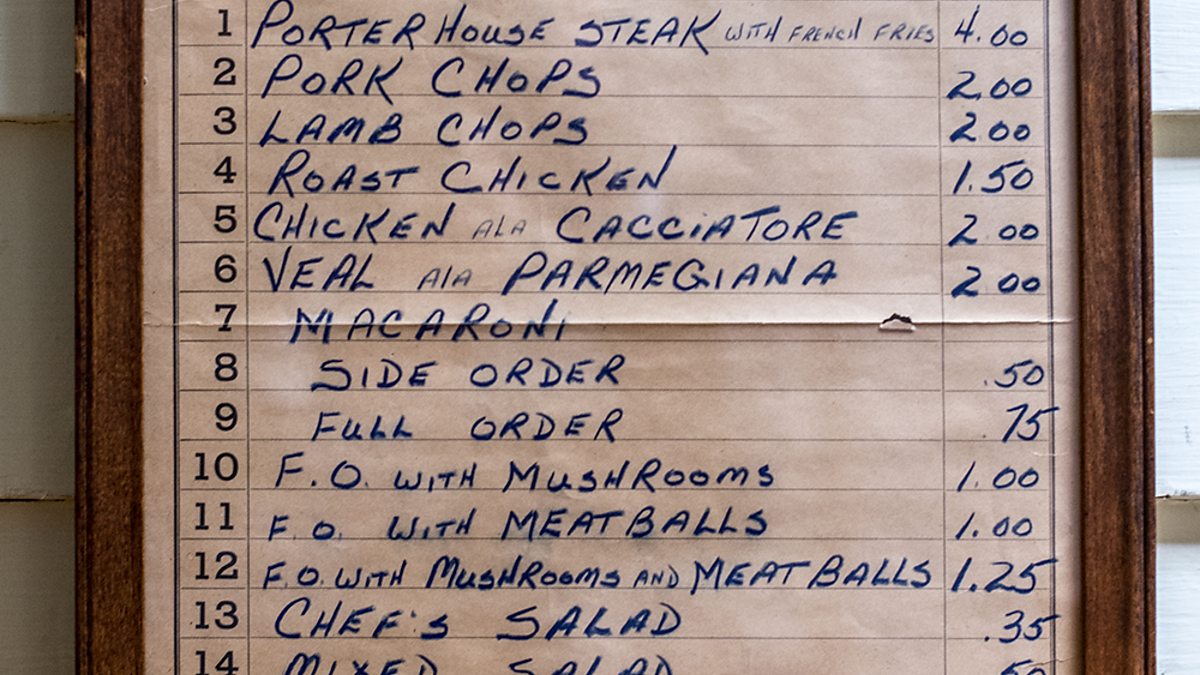 1 PORTERHOUSE STEAK WITH FRENCH FRIES 4.00
2 PORK CHOPS 2.00
3 LAMB CHOPS 2.00
4 ROAST CHICKEN 1.50
5 CHICKEN ALA CACCIATORE 2.00
6 VEAL ALA PARMEGIANA 2.00
7 MACARONI
8 SIDE ORDER .50
9 FULL ORDER .75
10 F.O. WITH MUSHROOMS 1.00
11 F.O. WITH MEATBALLS 1.00
12 F.O. WITH MUSHROOMS AND MEATBALLS 1.25
13 CHEF'S SALAD .35
14 MIXED SALAD .50